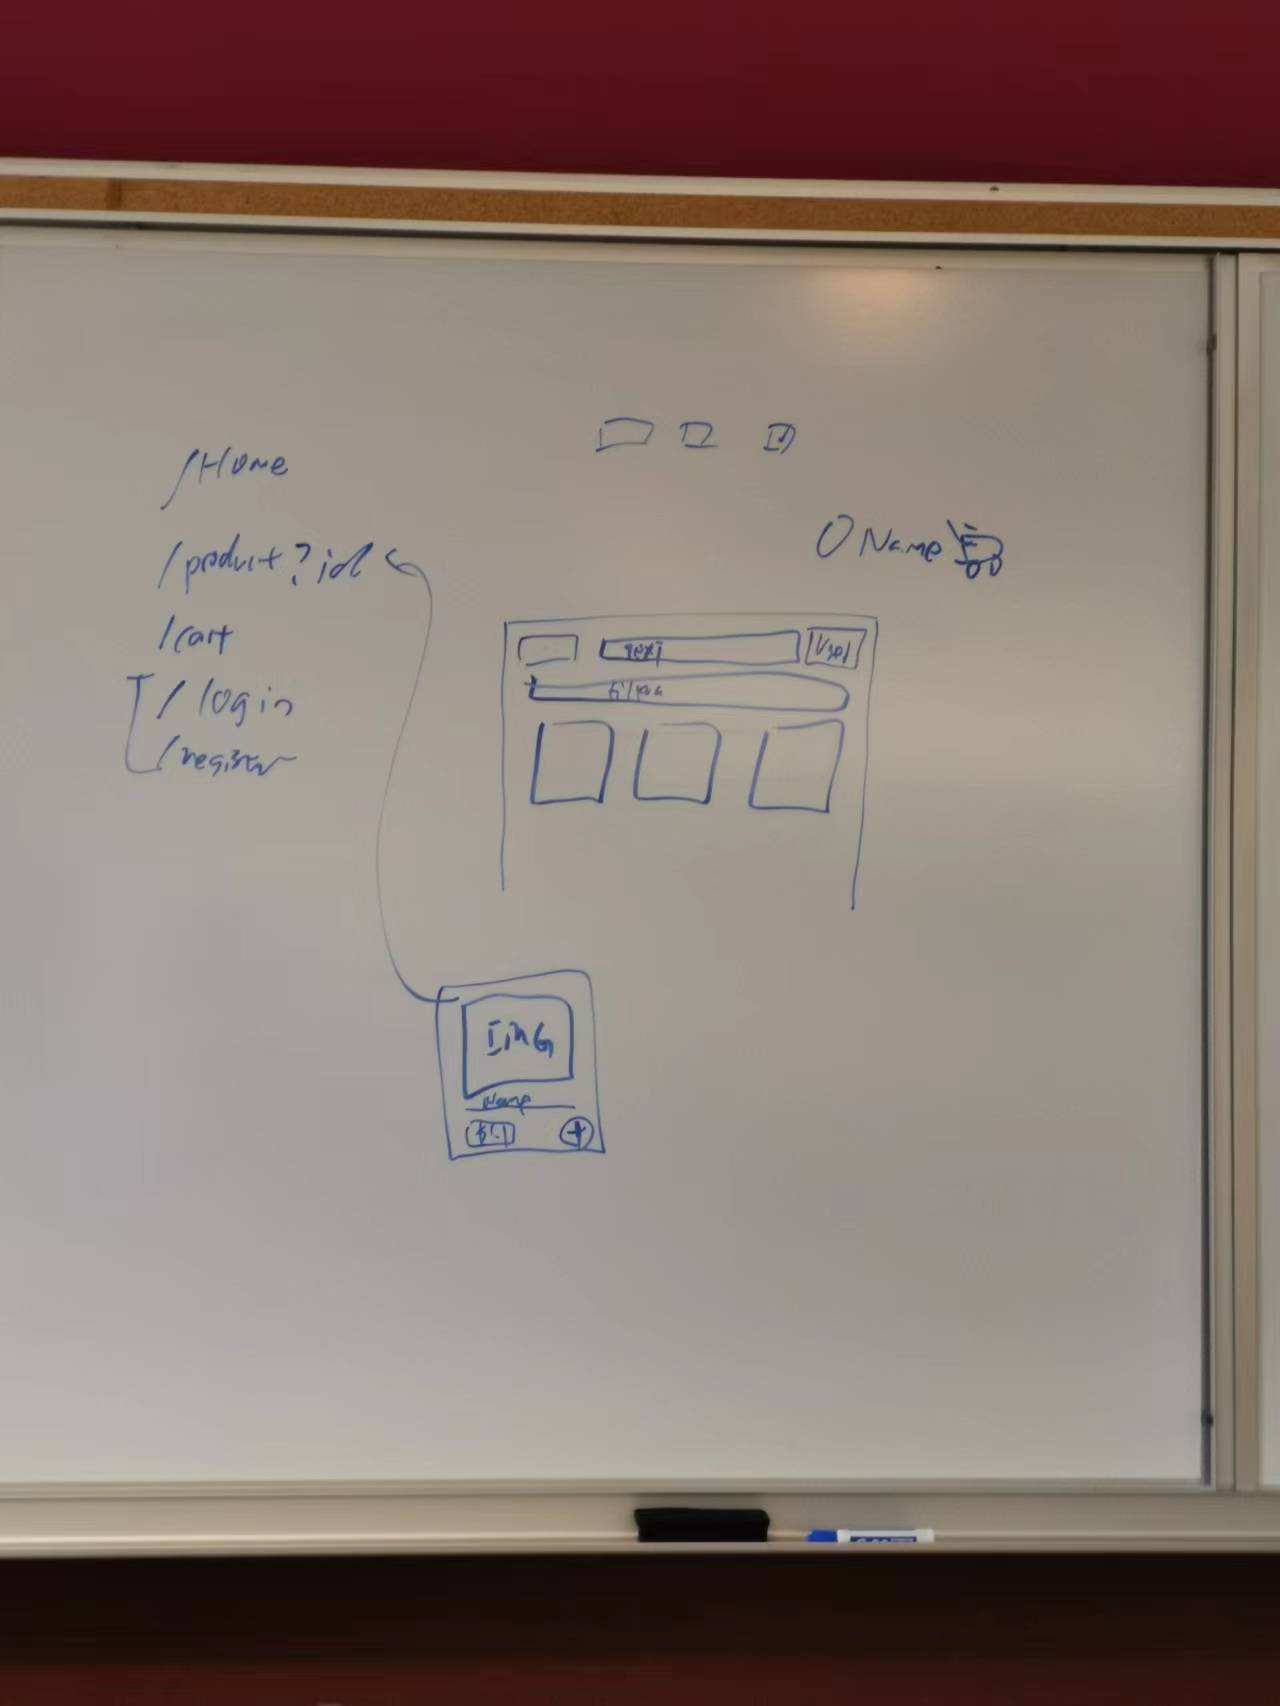 /Home
/product?id
/cart
/login
/register
O Name
text
User
IMG
Name
+